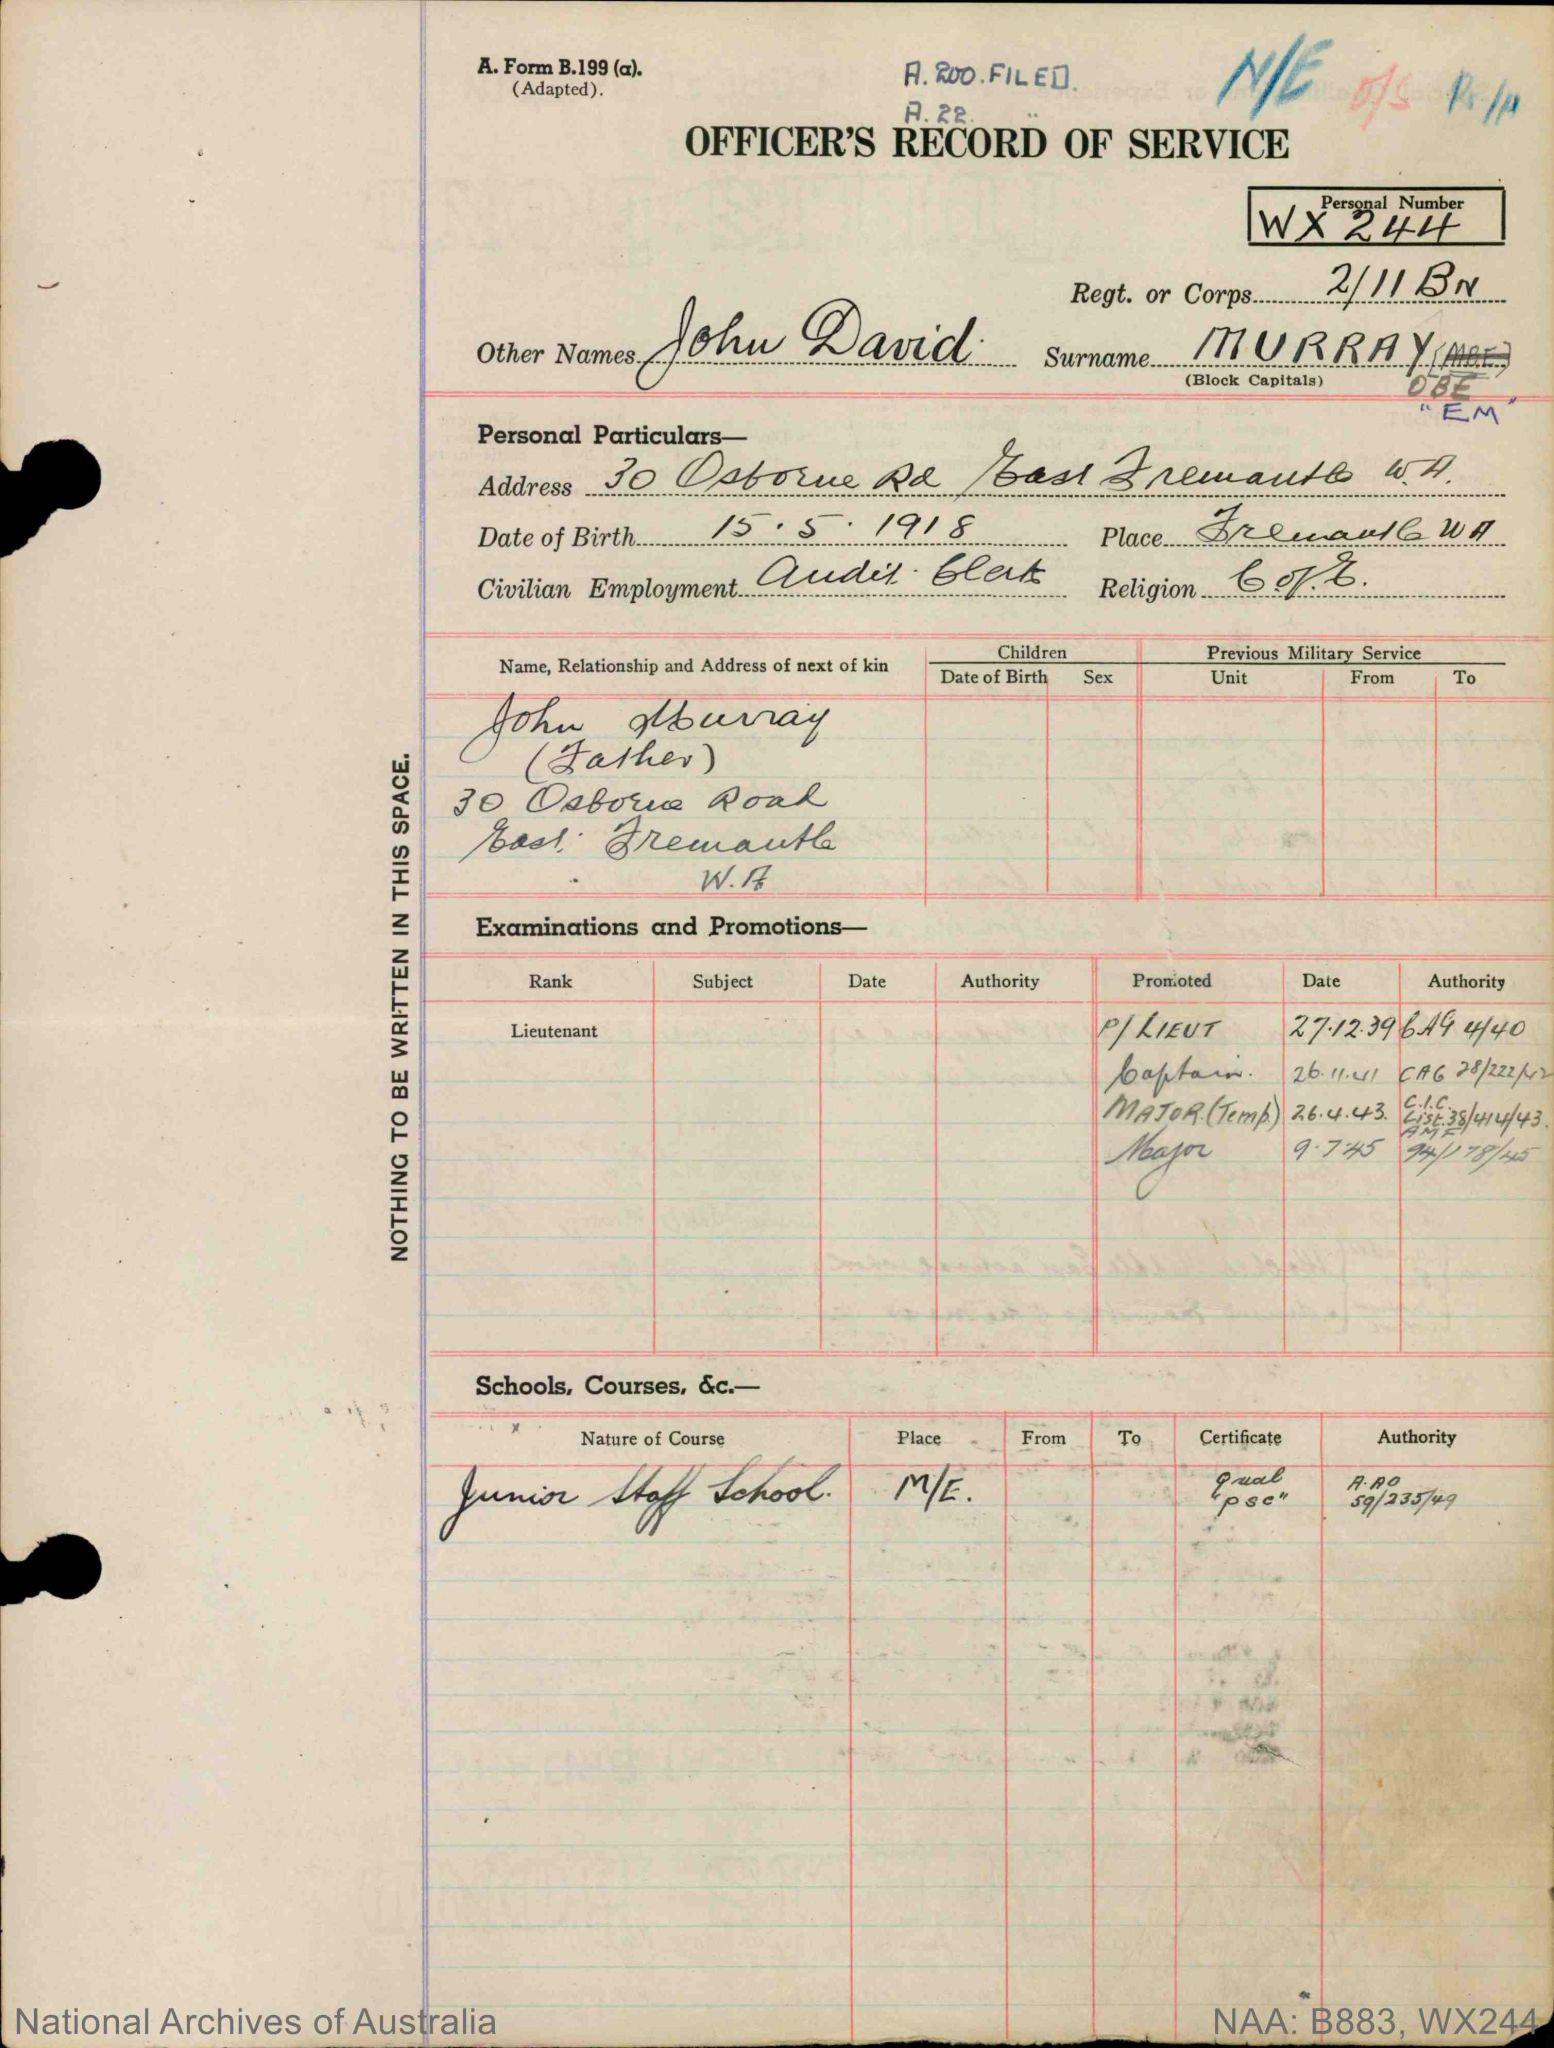 A. Form B.199 (a).
(Adapted).
A. 200. FILED.
A. 22
N/E
O/S
OFFICER'S RECORD OF SERVICE
Personal Number
WX 244
Regt. or Corps 2/11 BN
Other Names John David Surname MURRAY (MBE)
(Block Capitals)
OBE
"EM"
Personal Particulars—
Address 30 Osborne Rd East Fremantle W.A.
Date of Birth 15.5.1918 Place Fremantle WA
Civilian Employment Audit Clerk Religion C of E.
Name, Relationship and Address of next of kin
Children
Date of Birth Sex
Previous Military Service
Unit From To
John Murray
(Father)
30 Osborne Road
East Fremantle
W.A
NOTHING TO BE WRITTEN IN THIS SPACE.
Examinations and Promotions—
Rank Subject Date Authority Promoted Date Authority
Lieutenant P/LIEUT 27.12.39 CAG 4/40
Captain. 26.11.41 CAG 28/222/42
MAJOR.(Temp.) 26.4.43. C.I.C. List.38/414/43.
Major 9.7.45 AMF 94/178/45
Schools, Courses, &c.—
Nature of Course Place From To Certificate Authority
Junior Staff School. M/E. qual "psc" A.AO 59/235/49
National Archives of Australia
NAA: B883, WX244